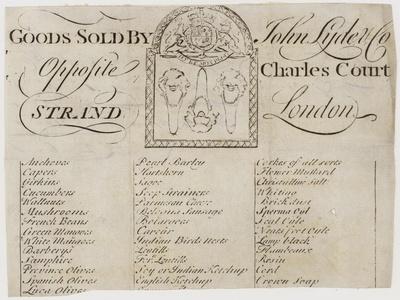 GOODS SOLD BY John Lyde & Co
Opposite Charles Court
STRAND London
Anchoves
Capers
Girkins
Cucumbers
Wallnuts
Mushrooms
French Beans
Green Mangoes
White Mangoes
Barberys
Samphire
Province Olives
Spanish Olives
Luca Olives
Pearl Barley
Hartshorn
Sagoe
Soop Strainers
Parmesan Cheese
Bologna Sausage
Botargoes
Caveir
Indian Bird nests
Lentills
Fr. Lentills
Soy or Indian Ketchup
English Ketchup
Corks of all sorts
Flower Mustard
Christalline Salt
Whiting
Brick dust
Sperma Cut
Seal Oyle
Neats foot Oyle
Lamp black
Flambeaux
Rosin
Cord
Crown Soap